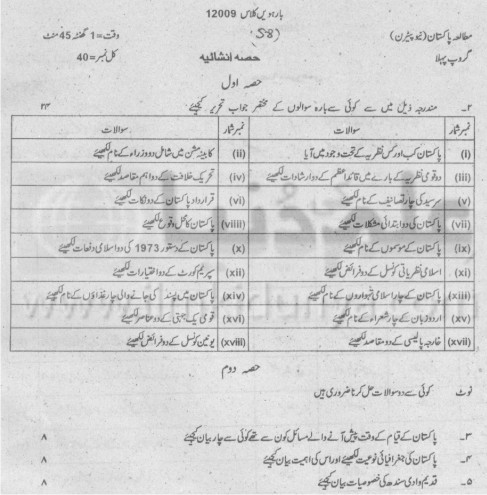 بارہویں کلاس 12009
مطالعہ پاکستان (نیو پیٹرن) (58) وقت=1 گھنٹہ 45 منٹ
گروپ پہلا حصہ انشائیہ کل نمبر=40
حصہ اول
۲۔ مندرجہ ذیل میں سے کوئی سے بارہ سوالوں کے مختصر جواب تحریر کیجئیے ۲۴
نمبر شمار سوالات نمبر شمار سوالات
(i) پاکستان کب اور کس نظریہ کے تحت وجود میں آیا (ii) کابینہ مشن میں شامل دو وزراء کے نام لکھیئے
(iii) دو قومی نظریہ کے بارے میں قائداعظم کے دو ارشادات لکھیئے (iv) تحریک خلافت کے دو اہم مقاصد لکھیئے
(v) سرسید کی چار تصانیف کے نام لکھیئے (vi) قرارداد پاکستان کے دو نکات لکھیئے
(vii) پاکستان کی دو ابتدائی مشکلات لکھیئے (viiii) پاکستان کا محل وقوع لکھیئے
(ix) پاکستان کے موسموں کے نام لکھیئے (x) پاکستان کے دستور 1973 کی دو اسلامی دفعات لکھیئے
(xi) اسلامی نظریاتی کونسل کے دو فرائض لکھیئے (xii) سپریم کورٹ کے دو اختیارات لکھیئے
(xiii) پاکستان کے چار اسلامی تہواروں کے نام لکھیئے (xiv) پاکستان میں پسند کی جانے والی چار غذاؤں کے نام لکھیئے
(xv) اردو زبان کے چار شعراء کے نام لکھیئے (xvi) قومی یک جہتی کے دو عناصر لکھیئے
(xvii) خارجہ پالیسی کے دو مقاصد لکھیئے (xviii) یونین کونسل کے دو فرائض لکھیئے
حصہ دوم
نوٹ کوئی سے دو سوالات حل کرنا ضروری ہیں
۳۔ پاکستان کے قیام کے وقت پیش آنے والے مسائل کون سے تھے کوئی سے چار بیان کیجئیے ۸
۴۔ پاکستان کی جغرافیائی نوعیت لکھیئے اور اس کی اہمیت بیان کیجئیے ۸
۵۔ قدیم وادی سندھ کی خصوصیات بیان کیجئیے ۸